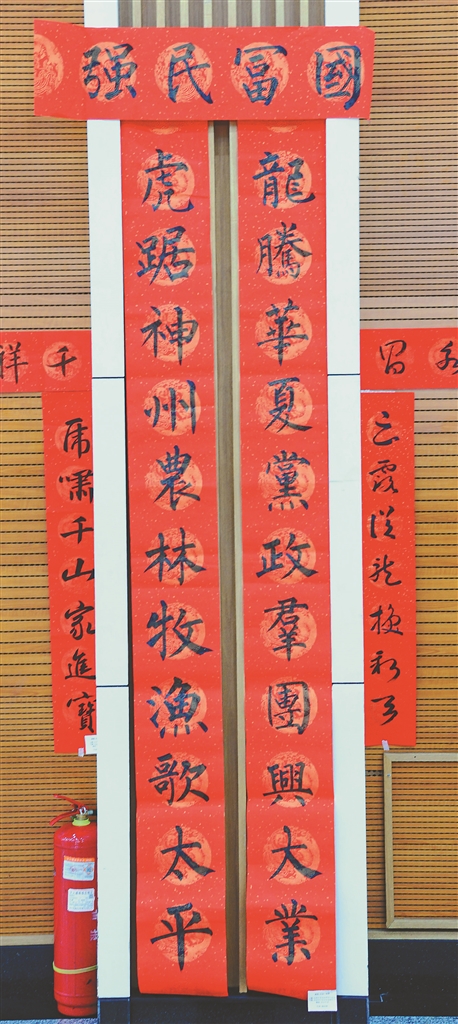 國冨民强
龍騰華夏黨政羣團興大業
虎踞神州農林牧漁歌太平
千祥
虎嘯千山家進寶